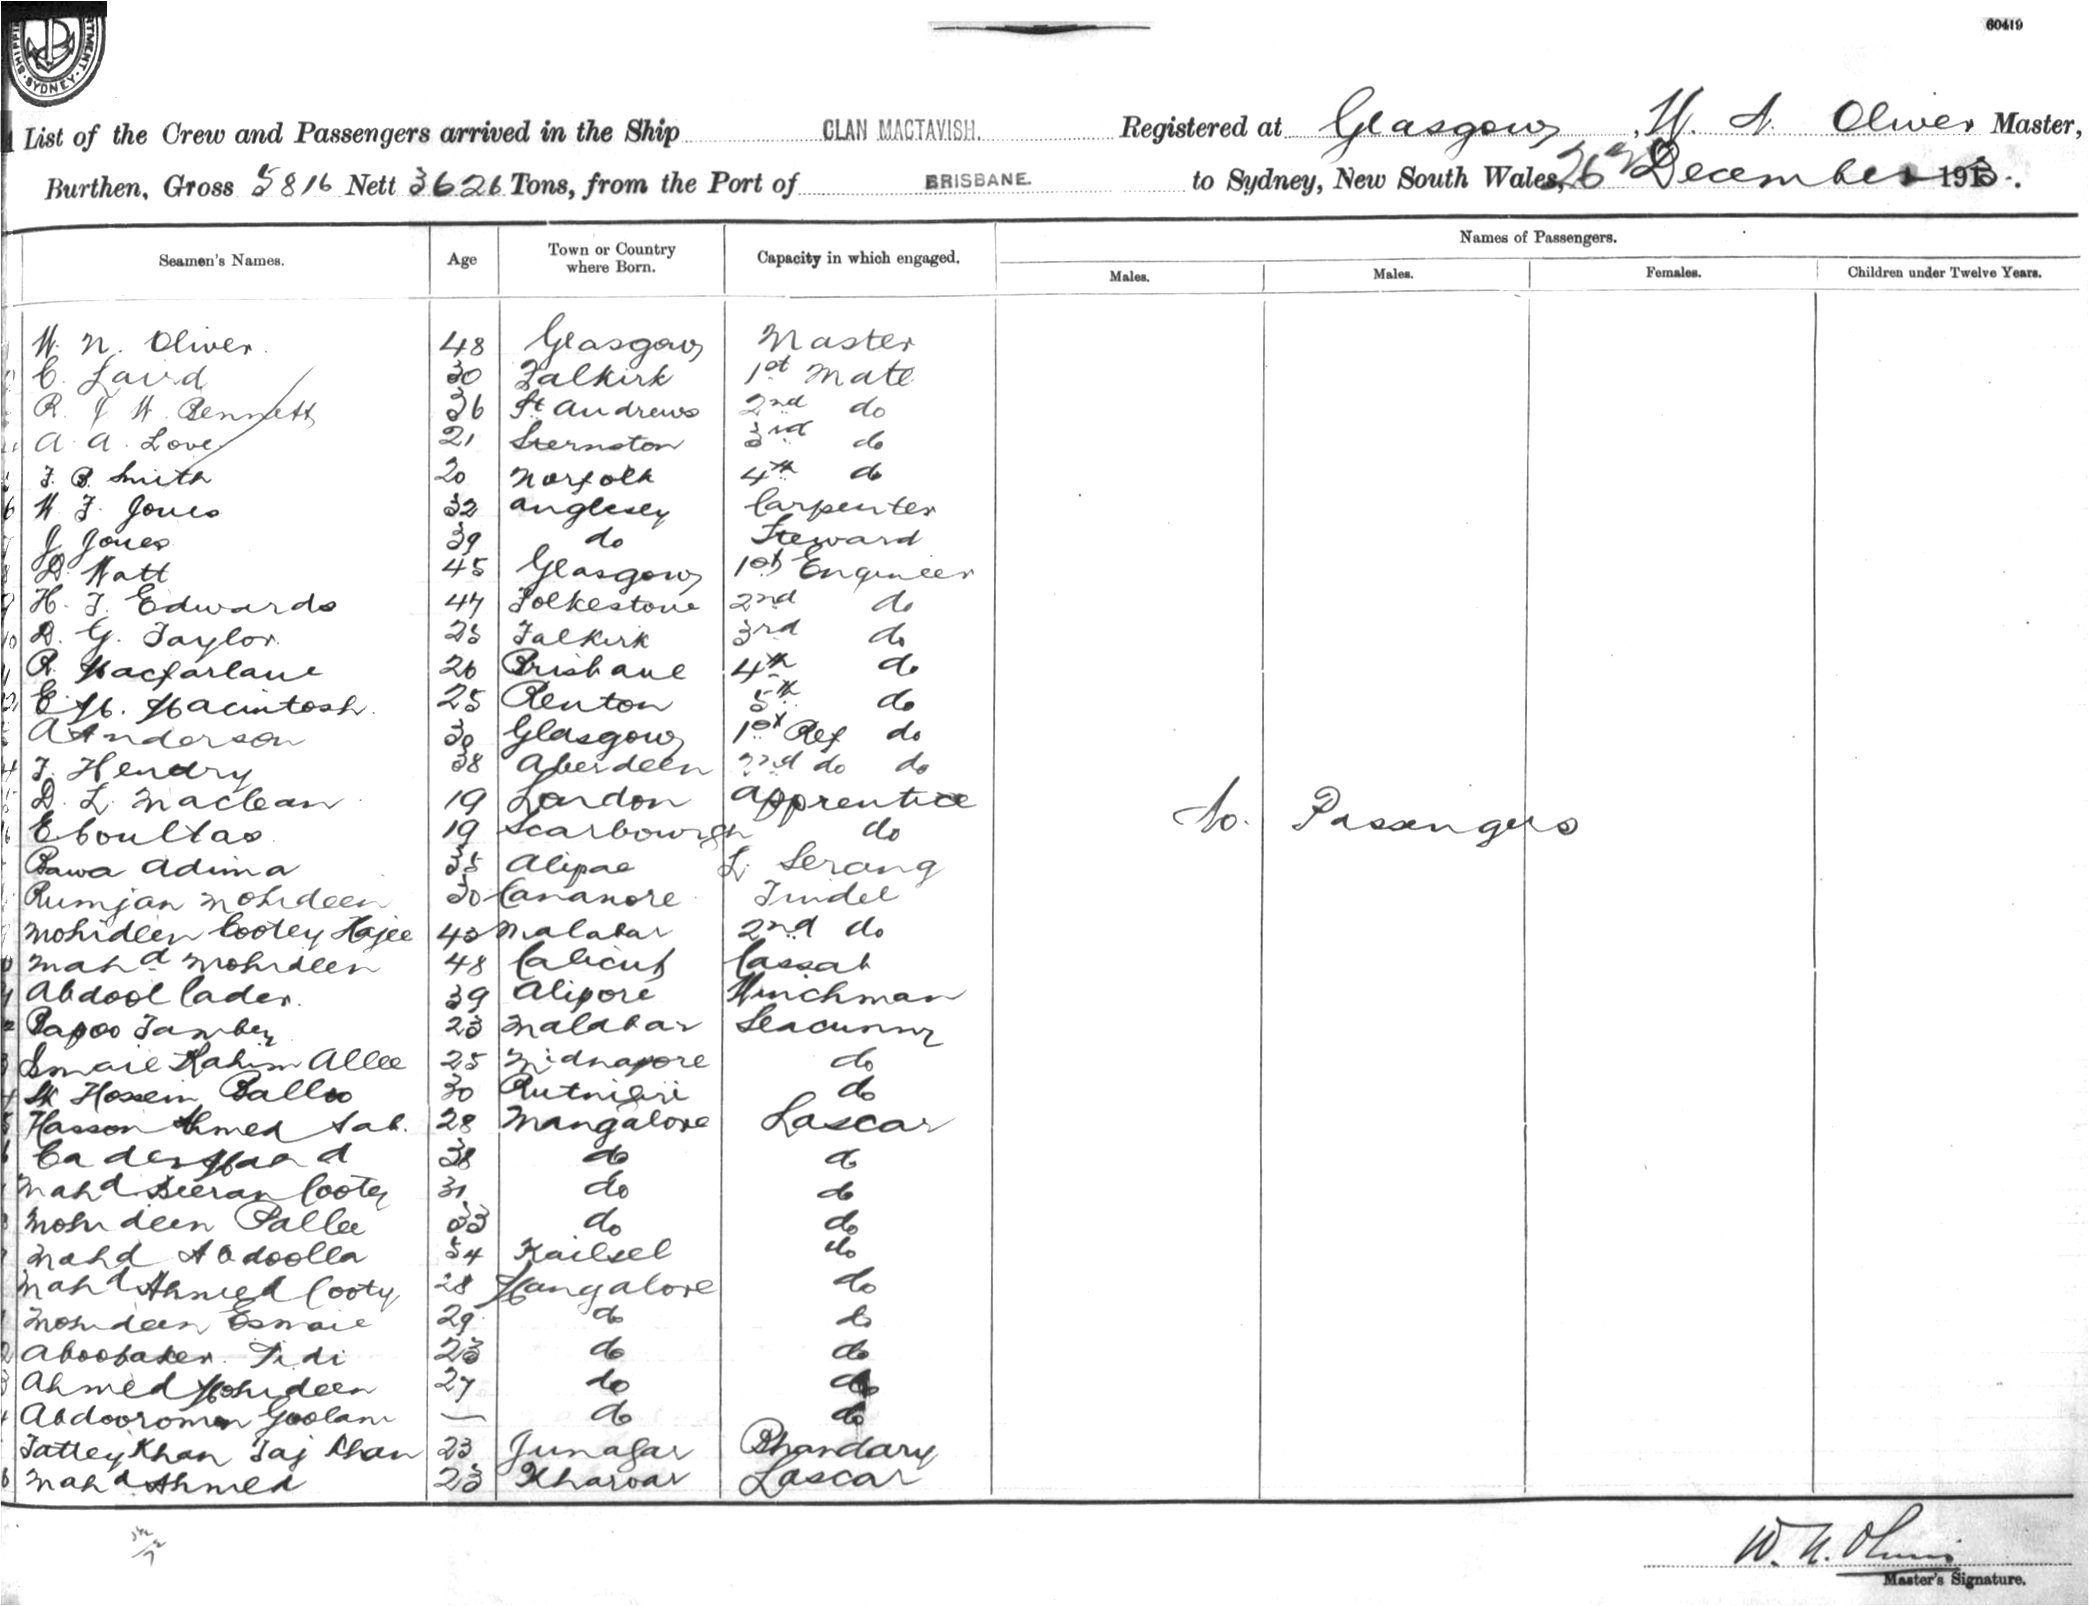 60419
SYDNEY
List of the Crew and Passengers arrived in the Ship CLAN MACTAVISH. Registered at Glasgow, W. N. Oliver Master,
Burthen, Gross 5816 Nett 3626 Tons, from the Port of BRISBANE. to Sydney, New South Wales, 26th December 1913.
Names of Passengers.
Seamen's Names. Age Town or Country where Born. Capacity in which engaged. Males. Males. Females. Children under Twelve Years.
W. N. Oliver 48 Glasgow Master
C. Laird 30 Falkirk 1st Mate
R. J. W. Bennett 36 St. Andrews 2nd do
A. A. Love 21 3rd do
J. B. Smith 20 Norfolk 4th do
W. J. Jones 32 Anglesey Carpenter
J Jones 39 do Steward
D. Watt 45 Glasgow 1st Engineer
H. J. Edwards 44 Folkestone 2nd do
D. G. Taylor 25 Falkirk 3rd do
R. Macfarlane 26 Brisbane 4th do
E. M. Macintosh 25 Renton 5th do
A Anderson 30 Glasgow 1st Ref do
J. Hendry 38 Aberdeen 2nd do do
D. L. Maclean 19 London Apprentice
No. Passengers
E Coultas 19 Scarbourgh do
Bawa Adima 35 Alipae L. Serang
Rumjan Mohideen 30 Cananore Tindel
Mohideen Cootey Hajee 43 Malabar 2nd do
Mahd Mohideen 48 Calicut Cassab
Abdool Cader 39 Alipore Winchman
Bapoo Tamby 23 Malabar Seacunny
Ismail Rahim Allee 25 Midnapore do
Sk Hossein Balloo 30 do
Hasson Ahmed Sab. 28 Mangalore Lascar
Cader Mahd 38 do do
Mahd Beeran Cootey 31 do do
Mohideen Pallee 33 do do
Mahd Abdoolla 34 do
Mahd Ahmed Cooty 28 Mangalore do
Mohideen Esmail 29 do do
Aboobaker Sidi 23 do do
Ahmed Mohideen 27 do do
Abdooroman Goolam — do do
Fattey Khan Taj Khan 23 Junagar Bhandary
Mahd Ahmed 23 Kharvar Lascar
W. N. Oliver
Master's Signature.